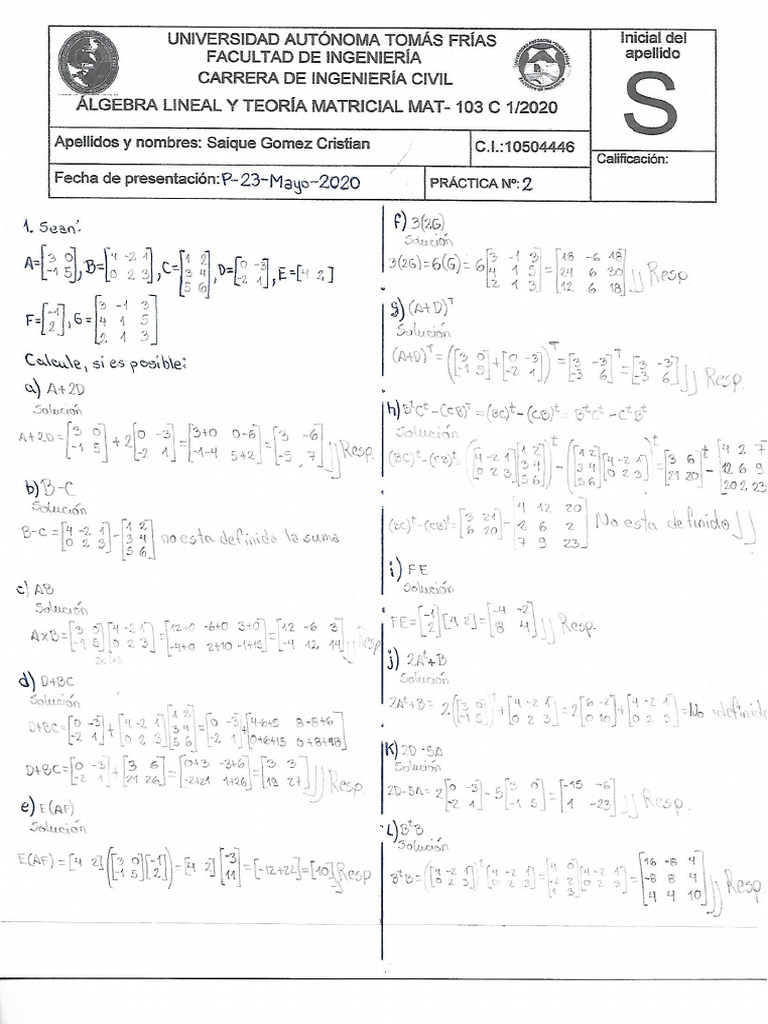 UNIVERSIDAD AUTÓNOMA TOMÁS FRÍAS
FACULTAD DE INGENIERÍA
CARRERA DE INGENIERÍA CIVIL
ÁLGEBRA LINEAL Y TEORÍA MATRICIAL MAT- 103 C 1/2020
Inicial del
apellido
S
Apellidos y nombres: Saique Gomez Cristian
C.I.:10504446
Calificación:
Fecha de presentación:P-23-Mayo-2020
PRÁCTICA Nº: 2
1. Sean:
A=[3 0; -1 5], B=[4 -2 1; 0 2 3], C=[1 2; 3 4; 5 6], D=[0 -3; -2 1], E=[4 2]
F=[-1; 2], G=[3 -1 3; 4 1 5; 2 1 3]
Calcule, si es posible:
a) A+2D
Solución
A+2D=[3 0; -1 5]+2[0 -3; -2 1]=[3+0 0-6; -1-4 5+2]=[3 -6; -5 7] Resp.
b) B-C
Solución
B-C=[4 -2 1; 0 2 3]-[1 2; 3 4; 5 6] no esta definida la suma
c) AB
Solución
A×B=[3 0; -1 5][4 -2 1; 0 2 3]=[12+0 -6+0 3+0; -4+0 2+10 -1+15]=[12 -6 3; -4 12 14] Resp
d) D+BC
Solución
D+BC=[0 -3; -2 1]+[4 -2 1; 0 2 3][1 2; 3 4; 5 6]=[0 -3; -2 1]+[4-6+5 8-8+6; 0+6+15 0+8+18]
D+BC=[0 -3; -2 1]+[3 6; 21 26]=[0+3 -3+6; -2+21 1+26]=[3 3; 19 27] Resp.
e) E(AF)
Solución
E(AF)=[4 2]([3 0; -1 5][-1; 2])=[4 2][-3; 11]=[-12+22]=[10] Resp
f) 3(2G)
Solución
3(2G)=6(G)=6[3 -1 3; 4 1 5; 2 1 3]=[18 -6 18; 24 6 30; 12 6 18] Resp
g) (A+D)^T
Solución
(A+D)^T=([3 0; -1 5]+[0 -3; -2 1])^T=[3 -3; -3 6]^T=[3 -3; -3 6] Resp.
h) B^tC^t-(CB)^t=(BC)^t-(CB)^t=B^tC^t-C^tB^t
Solución
(BC)^t-(CB)^t=([4 -2 1; 0 2 3][1 2; 3 4; 5 6])^t-([1 2; 3 4; 5 6][4 -2 1; 0 2 3])^t=[3 6; 21 20]^t-[4 2 7; 12 6 9; 20 2 23]
(BC)^t-(CB)^t=[3 21; 6 20]-[4 12 20; 2 6 2; 7 9 23] No esta definido
i) FE
Solución
FE=[-1; 2][4 2]=[-4 -2; 8 4] Resp.
j) 2A^t+B
Solución
2A^t+B=2([3 0; -1 5])^t+[4 -2 1; 0 2 3]=2[6 -2; 0 10]+[4 -2 1; 0 2 3]=No
K) 2D-5A
Solución
2D-5A=2[0 -3; -2 1]-5[3 0; -1 5]=[-15 -6; 1 -23] Resp.
L) B^tB
Solución
B^tB=([4 -2 1; 0 2 3])^t[4 -2 1; 0 2 3]=[4 0; -2 2; 1 3][4 -2 1; 0 2 3]=[16 -8 4; -8 8 4; 4 4 10] Resp.